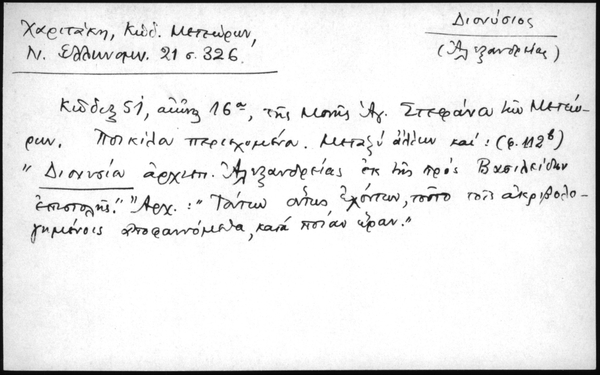 Χαριτάκη, Κώδ. Μετεώρων,
Ν. Ελληνομν. 21 σ. 326
Διονύσιος
(Ἀλεξανδρείας)
Κῶδιξ 51, αἰῶν 16ος, τῆς Μονῆς Ἁγ. Στεφάνου τῶν Μετεώ-
ρων. Ποικίλα περιεχομένα. Μεταξὺ ἄλλων καὶ: (φ. 112β)
" Διονυσίου ἀρχιεπ. Ἀλεξανδρείας ἐκ τῆς πρὸς Βασιλείδην
ἐπιστολῆς." Ἀρχ.: "Τούτων οὕτως ἐχόντων, τοῦτο τοῖς ἀκριβολο-
γημένοις ἀποφαινόμεθα, κατὰ ποίαν ὥραν."